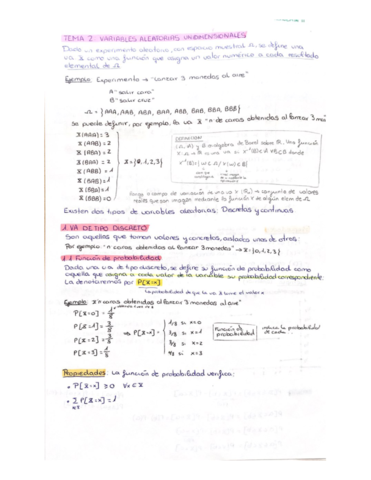 TEMA 2: VARIABLES ALEATORIAS UNIDIMENSIONALES
Dado un experimento aleatorio, con espacio muestral Ω, se define una
v.a X como una función que asigna un valor numérico a cada resultado
elementos de Ω
Ejemplo: Experimento → "Lanzar 3 monedas al aire"
A = "salir cara"
B = "salir cruz"
Ω = {AAA, AAB, ABA, BAA, ABB, BAB, BBA, BBB}
Se puede definir, por ejemplo, la va X = "nº de caras obtenidas al lanzar 3 mon
X(AAA) = 3
X(AAB) = 2
X(ABA) = 2
X(BAA) = 2
X(ABB) = 1
X(BAB) = 1
X(BBA) = 1
X(BBB) = 0
X = {0, 1, 2, 3}
DEFINICIÓN:
σ-álgebra de Borel sobre ℝ. Una función
es una va si donde
campo de variación de una va → conjunto de valores
reales que son imagen mediante la función de algún elem de Ω
Existen dos tipos de variables aleatorias: Discretas y continuas
1. VA DE TIPO DISCRETO
Son aquellas que toman valores concretos, aislados unos de otros:
Por ejemplo "nº caras obtenidas al lanzar 3 monedas" → X = {0, 1, 2, 3}
1.1 Función de probabilidad
Dada una va de tipo discreto, se define su función de probabilidad como
aquella que asigna a cada valor de la variable su probabilidad correspondiente.
La denotaremos por P[X=x]
La probabilidad de que la X tome el valor x
Ejemplo: X "nº caras obtenidas al lanzar 3 monedas al aire"
P[X=0] = 1/8
P[X=1] = 3/8
P[X=2] = 3/8
P[X=3] = 1/8
⇒ P[X=x] =
1/8 si x=0
3/8 si x=1
3/8 si x=2
1/8 si x=3
Función de probabilidad
la probabilidad
de cada
Propiedades: La función de probabilidad verifica:
• P[X=x] ≥ 0 ∀x ∈ X
• Σ P[X=x] = 1